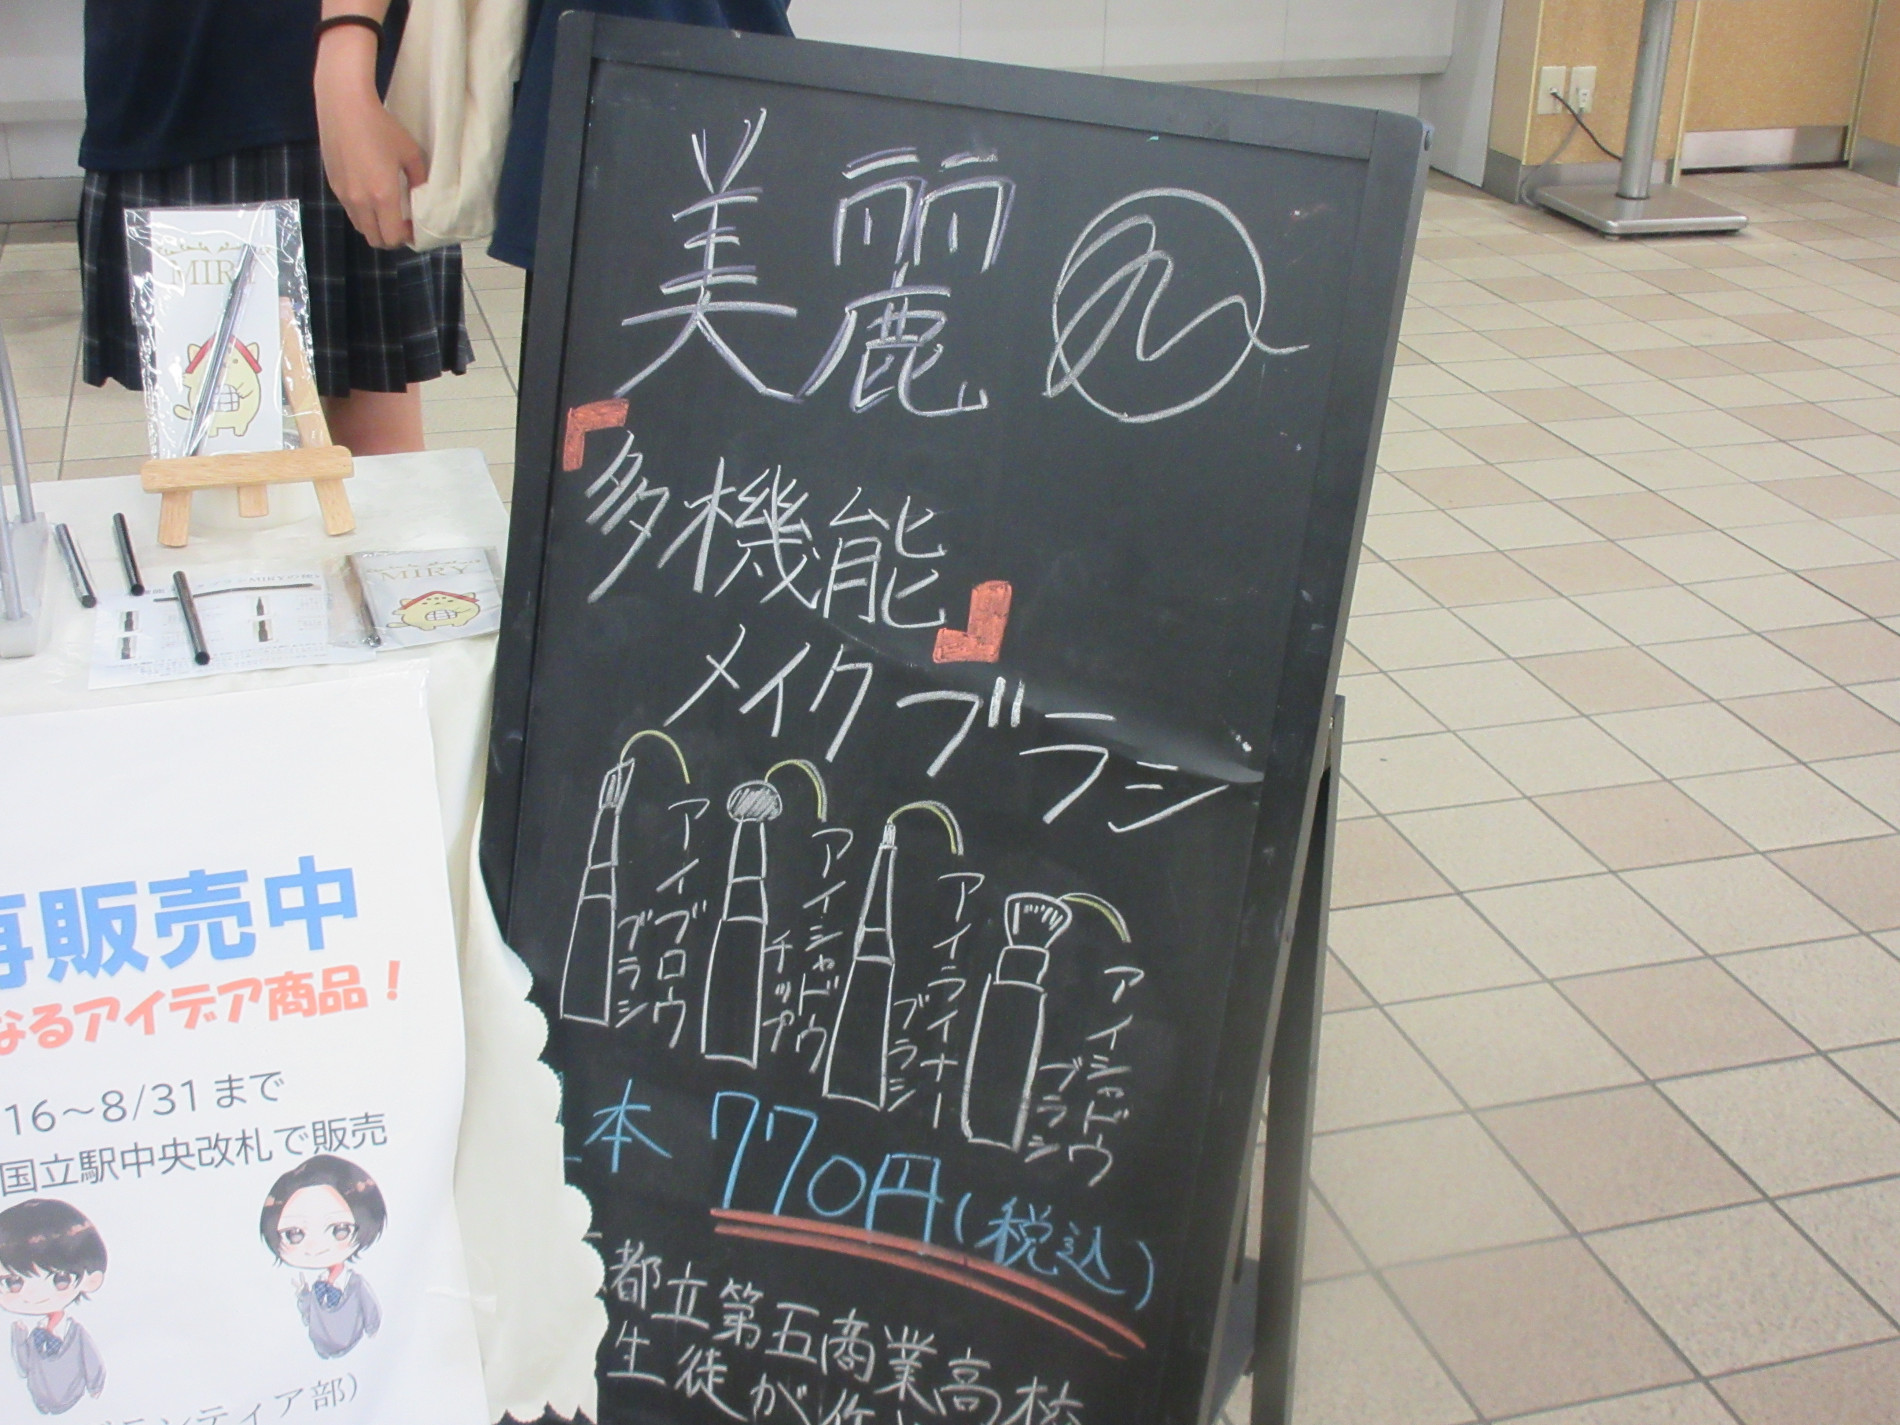 美麗
「多機能」
メイクブラシ
アイブロウ
ブラシ
アイシャドウ
チップ
アイライナー
ブラシ
アイシャドウ
ブラシ
本 770円(税込)
都立第五商業高校
生徒が
MIRY
MIRY
再販売中
なるアイデア商品！
16～8/31まで
国立駅中央改札で販売
ランティア部）